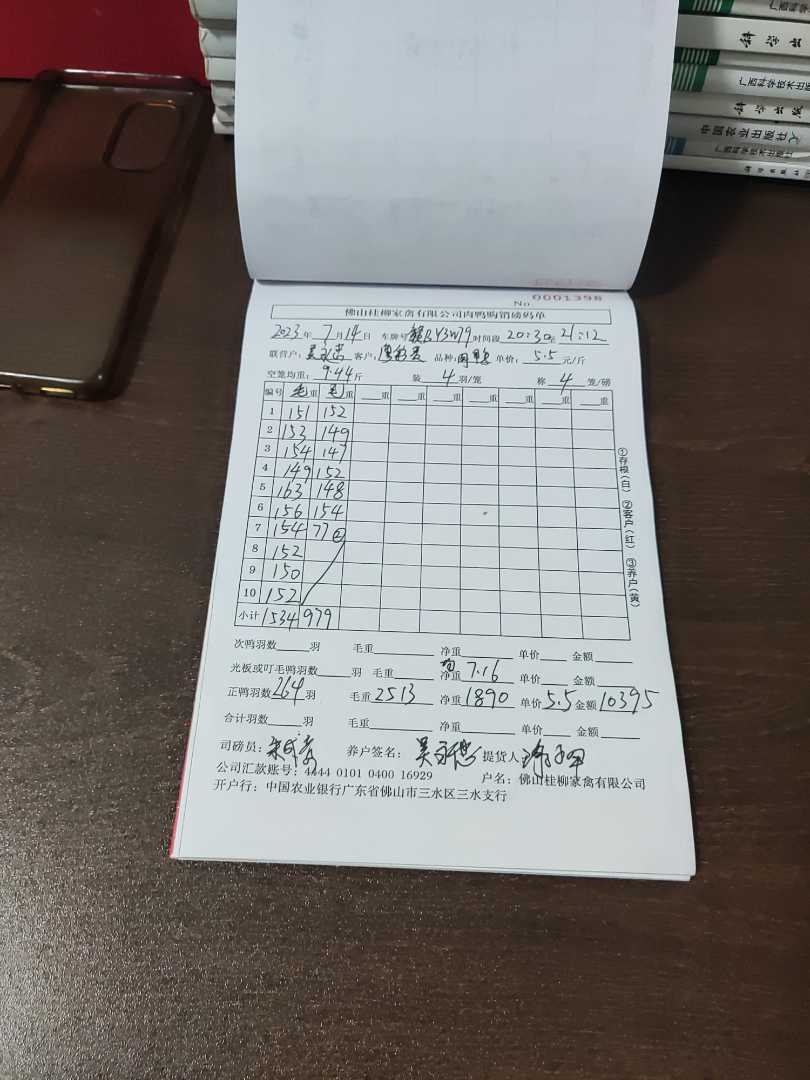 广西科学技术出版社
科学出
广西科学技术出版
科学出版
中国农业出版社
广西科学技术出版社
科学出版社
No 0001398
佛山桂柳家禽有限公司肉鸭购销磅码单
2023年 7月 14日 车牌号 Y3W79 时间段 20:30至 21:12
联营户: 客户: 品种: 单价: 5.5 元/斤
空笼均重: 9.44 斤 装 4 羽/笼 称 4 笼/磅
编号 毛重 毛重 重 重 重 重 重 重 重
1 151 152
2 153 149
3 154 147
4 149 152
5 163 148
6 156 154
7 154 77②
8 152
9 150
10 152
小计 1534 979
①存根(白) ②客户(红) ③养户(黄)
次鸭羽数 羽 毛重 净重 单价 金额
光板或叮毛鸭羽数 羽 毛重 净重 均7.16 单价 金额
正鸭羽数 264 羽 毛重 2513 净重 1890 单价 5.5 金额 10395
合计羽数 羽 毛重 净重 单价 金额
司磅员: 养户签名: 提货人
公司汇款账号: 4444 0101 0400 16929 户名: 佛山桂柳家禽有限公司
开户行: 中国农业银行广东省佛山市三水区三水支行